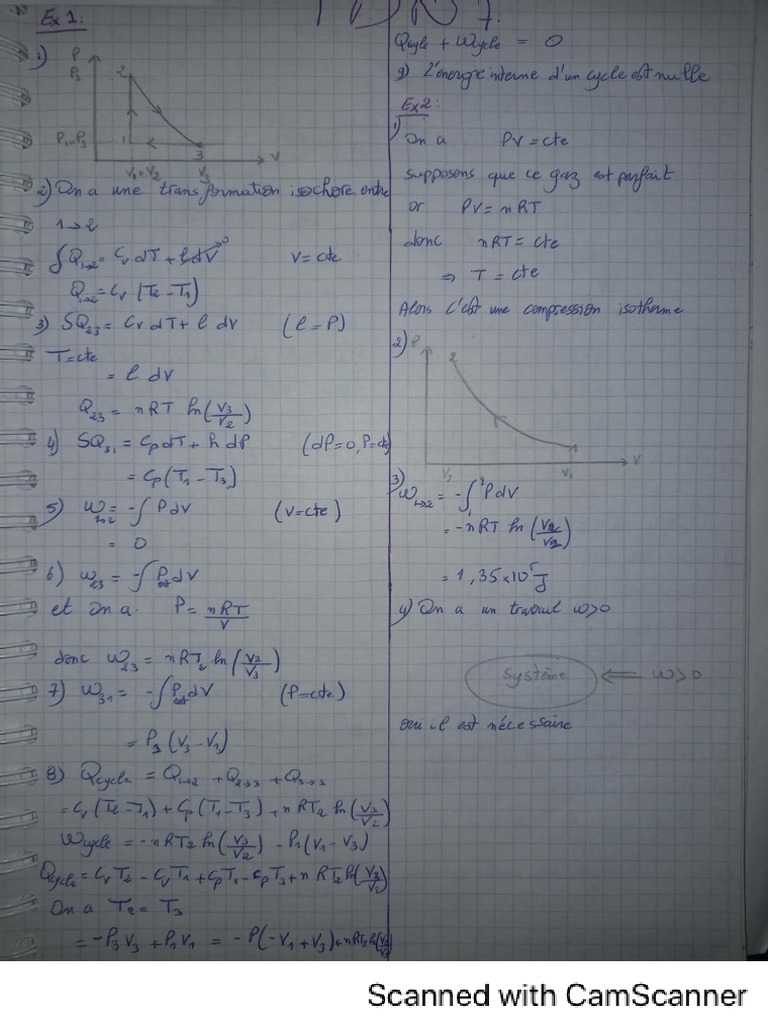 TD N 7:
Ex 1:
1)
P
P2
2
P1=P3
1
3
V
V1=V2
V3
2) On a une transformation isochore entre
1→2
∫Q1→2 = Cv dT + l dV →0    V = cte
Q1→2 = Cv (T2 - T1)
3) SQ23 = Cv dT + l dV    (l = P)
T=cte
= l dV
Q23 = nRT ln(V3/V2)
4) SQ31 = Cp dT + h dP    (dP=0, P=cte)
= Cp(T1 - T3)
5) W1→2 = -∫ P dV    (V=cte)
= 0
6) W23 = -∫ Pext dV
et On a. P = nRT/V
donc W23 = nRT2 ln(V2/V3)
7) W31 = -∫ Pext dV    (P=cte)
= P1 (V3 - V1)
8) Qcycle = Q1→2 + Q2→3 + Q3→1
= Cv (T2 - T1) + Cp (T1 - T3) + nRT2 ln(V3/V2)
Wcycle = -nRT2 ln(V3/V2) - P1 (V1 - V3)
Qcycle = CvT2 - CvT1 + CpT1 - CpT3 + nRT2 ln(V3/V2)
On a T2 = T3
= -P3V3 + P1V1 = -P(-V1 + V3) + nRT2 ln(V3/V2)
Qcycle + Wcycle = 0
9) L'énergie interne d'un cycle est nulle
Ex2:
1) On a PV = cte
supposons que ce gaz est parfait
or PV = nRT
donc nRT = cte
⇒ T = cte
Alors c'est une compression isotherme
2) P
2
1
V
V2
V1
3) W1→2 = -∫₁² P dV
= -nRT ln(V2/V1)
= 1,35×10⁵ J
4) On a un travail W>0
Système ⇐ W>0
oui il est nécessaire
Scanned with CamScanner